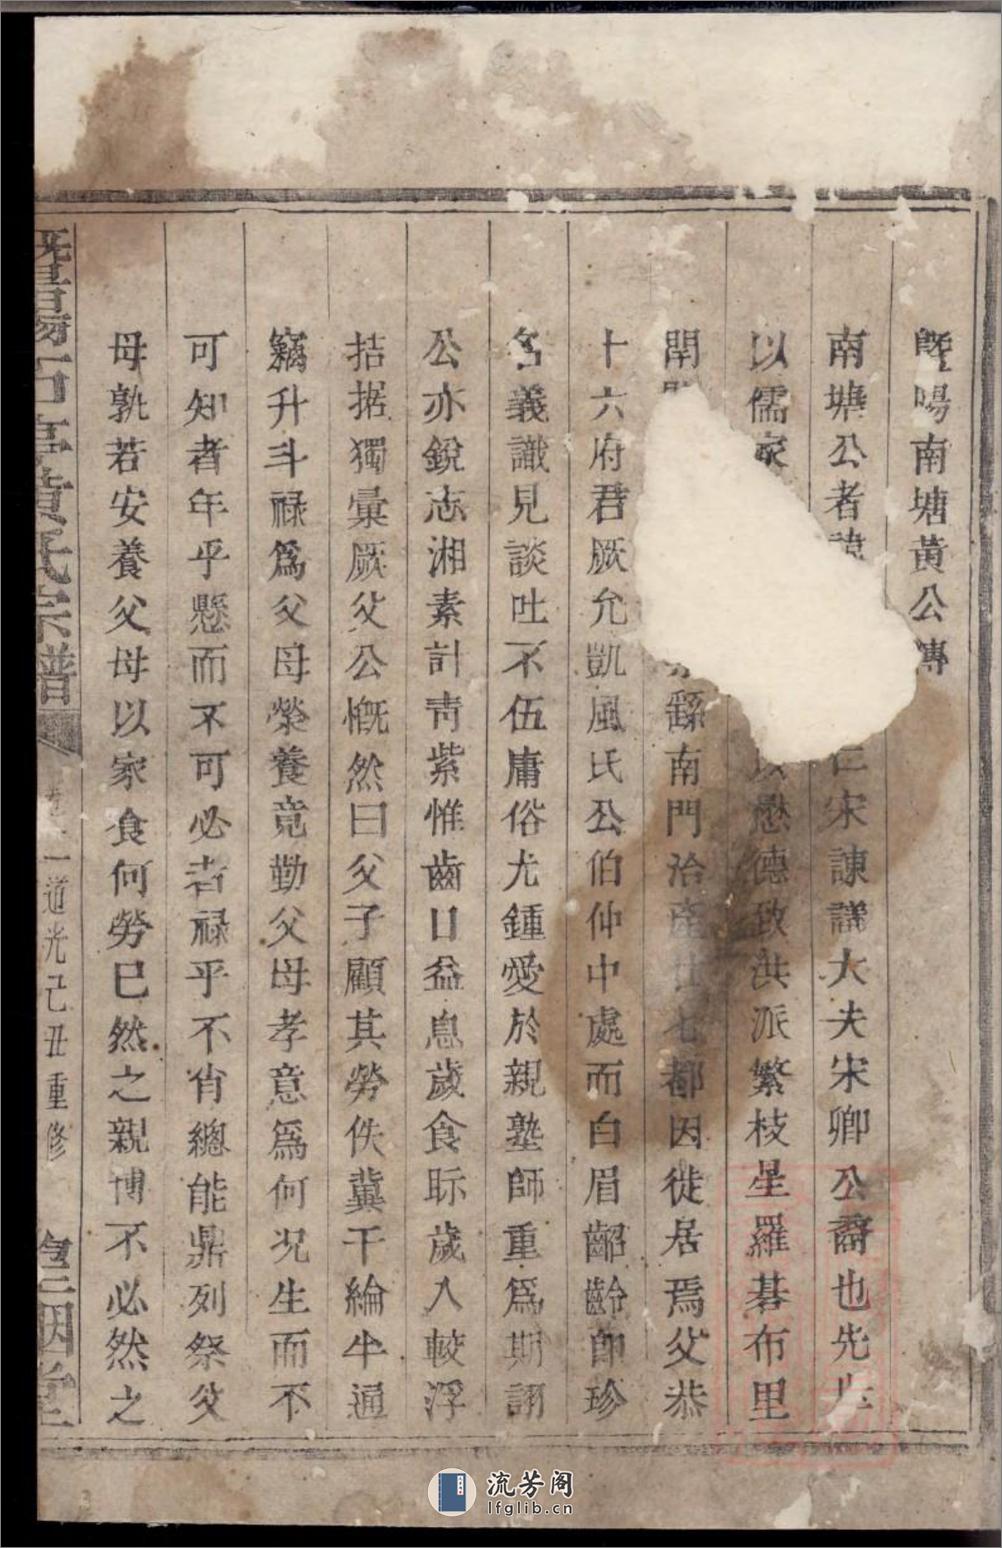 暨陽南塘黃公傳
南塘公者諱 仁宋諫議大夫宋卿公裔也先世
以儒家 懋德致洪派繁枝星羅碁布里
閈 縣南門治產廿七都因徙居焉父恭
十六府君厥允凱風氏公伯仲中處而白眉齠齡即珍
名義識見談吐不伍庸俗尤鍾愛於親塾師重為期詡
公亦銳志湘素計靑紫惟齒日益息歲食眎歲入較浮
拮据獨彙厥父公慨然曰父子顧其勞佚冀干綸牛通
竊升斗祿爲父母榮養竟勤父母孝意爲何况生而不
可知者年乎懸而不可必者祿乎不肖總能鼎列祭父
母孰若安養父母以家食何勞巳然之親博不必然之
暨陽石亭黃氏宗譜 一 道光己丑重修